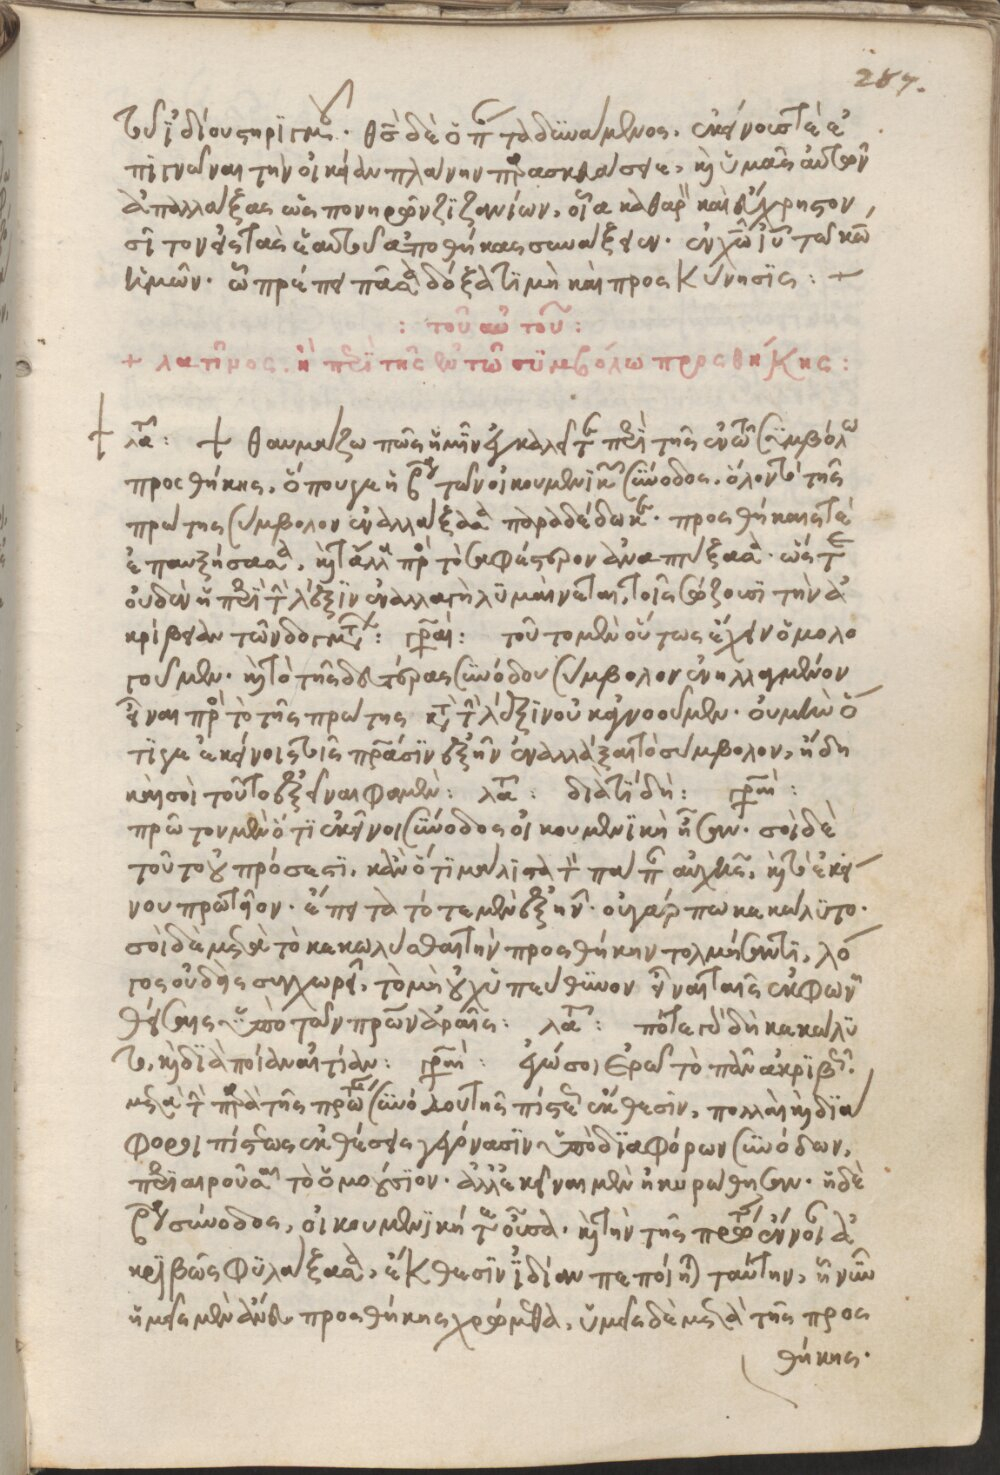 287.
τοῦ ἰδίους ηρισμ. θσ δὲ ὁ π τὰ δυνάμενος. ἐκείνους τὲ ἐ
πιγνῶναι τὴν οἰκείαν πλάνην παρασκευάσειε, καὶ ὑμᾶς αὐτῶν
ἀπαλλάξας ὡς πονηρῶν ζιζανίων, οἷα καθαρ καὶ εὔχρηστον,
σῖτον εἰς τὰς ἑαυτοῦ ἀποθήκας συνάξειεν. ἐν χω ιυ τῶ κω
ἡμῶν. ὧ πρέπει πᾶσα δόξα τιμὴ καὶ προσκύνησις: +
: τοῦ αὐτοῦ :
+ λατῖνος. ἢ περὶ τῆς ἐν τῶ συμβόλω προσθήκης :
λα: + θαυμάζω πῶς ἡμῖν ἐγκαλεῖτε περὶ τῆς ἐν τῶ συμβόλω
προσθήκης, ὅπου γε ἡ β τῶν οἰκουμενικ σύνοδος, ὅλον τὸ τῆς
πρώτης σύμβολον ἐναλλάξασα παραδέδωκε. προσθήκαις τὲ
ἐπαυξήσασα, καὶ τἄλλα πρ τὸ σαφέστερον ἀναπτύξασα. ὥστε
οὐδὲν ἡ περὶ τ λέξιν ἐναλλαγὴ λυμαίνεται, τοῖς σώζουσι τὴν ἀ
κρίβειαν τῶν δογμτ: γραι: τοῦτο μὲν οὕτως ἔχειν ὁμολο
γοῦμεν. καὶ τὸ τῆς δευτέρας συνόδου σύμβολον ἐνηλλαγμένον
εἶναι πρ τὸ τῆς πρώτης κτ τ λέξιν οὐκ ἀγνοοῦμεν. οὐ μὴν ὅ
τι γε ἐκείνοις τοῖς πράσιν ἐξῆν ἐναλλάξαι τὸ σύμβολον, ἤδη
καὶ σοὶ τοῦτο ἐξεῖναι φαμὲν: λα: διατί δή: γραι:
πρῶτον μὲν ὅτι ἐκεῖνοι σύνοδος οἰκουμενικὴ ἦσαν. σοὶ δὲ
τοῦτο οὐ πρόσεστι. κἂν ὅτι μάλιστα τ παπ αὐχεῖς, καὶ τὸ ἐκεί
νου πρωτεῖον. ἔπειτα τὸ τε μὲν ἐξῆν. οὐ γάρ πω κεκώλυτο.
σοὶ δὲ μετὰ τὸ κεκωλύσθαι τὴν προσθήκην τολμήσαντι, λό
γος οὐδεὶς συγχωρεῖ, τὸ μὴ οὐχ ὑπεύθυνον εἶναι ταῖς ἐκφωνη
θείσαις ὑπὸ τῶν πρων ἀραῖς: λα: πότε δὲ δὴ κεκώλυ
το, καὶ διὰ ποίαν αἰτίαν: γραι: ἐγώ σοι ἐρῶ τὸ πᾶν ἀκριβ.
μετὰ τ παρὰ τῆς πρώτ συνόδου τῆς πίστεως ἔκθεσιν, πολλαὶ καὶ διά
φοροι πίστεως ἐκθέσεις γεγόνασιν ὑπὸ διαφόρων συνόδων,
περιαιροῦσαι τὸ ὁμοούσιον. ἀλλ ἐκεῖναι μὲν ἠκυρώθησαν. ἡ δὲ
β σύνοδος, οἰκουμενική τε οὖσα. καὶ τὴν τῆς πρώτ ἔννοιαν ἀ
κριβῶς φυλάξασα, ἔκθεσιν ἰδίαν πεποίη ταύτην, ἧ νῦν
ἡμεῖς μὲν ἄνευ προσθήκης χρώμεθα, ὑμεῖς δὲ μετὰ τῆς προσ
θήκης.